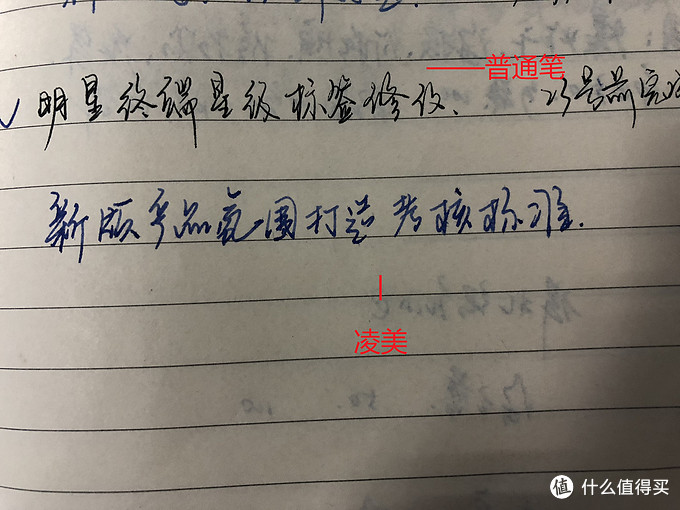 普通笔
明星终端星级标签修改、 25号前完成
新版产品氛围打造考核标准.
凌美
值 什么值得买